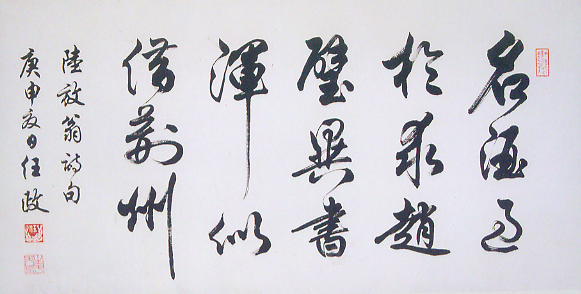 名酒過
於求趙
璧異書
渾似
借荆州
陸放翁詩句
庚申夏日任政